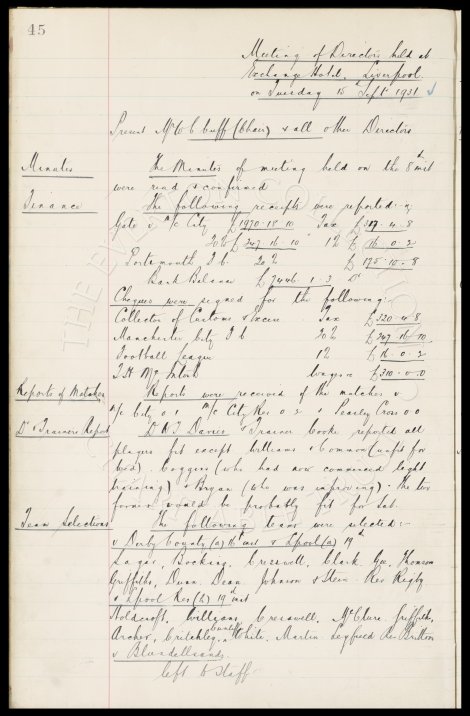 45
Meeting of Directors held at
Exchange Hotel, Liverpool.
on Tuesday 15th Sept. 1931
Present Mr W C Cuff (Chair) & all other Directors
Minutes The Minutes of meeting held on the 8th inst
were read & confirmed
Finance The following receipts were reported:-
Gate v M/c City £1970.18.10 Tax £ 4.8
20% £347.16.10 1% £16.0.2
Portsmouth F.C. 20% £175.10.8
Bank Balance £7446.1.3 Dr
Cheques were signed for the following:-
Collector of Customs & Excise Tax £320.4.8
Manchester City F.C. 20% £347.16.10
Football League 1% £16.0.2
T.H. McIntosh Wages £310.0.0
Reports of Matches Reports were received of the matches v
M/c City 0 1 M/c City Res 0 2 & Cross 0 0
Dr & Trainers Report Dr & Trainer Cooke reported all
players fit except Williams & Common (unfit for
), Coggins (who had now commenced light
training) & Bryan (who was improving). The two
former would be probably fit for Sat.
Team Selections The following teams were selected:-
v Derby County (a) 16th inst & L'pool (a) 19th
Sagar, Bocking, Cresswell, Clark, Gee, Thomson
Griffiths, Dunn, Dean, Johnson & Stein. Res Rigby
v L'pool Res (h) 19th inst
Holdcroft, Williams, Cresswell, McClure, Griffiths,
Archer, Critchley, Cunliffe, White, Martin, Leyfield Res Britton
v Blundellsands
left to Staff